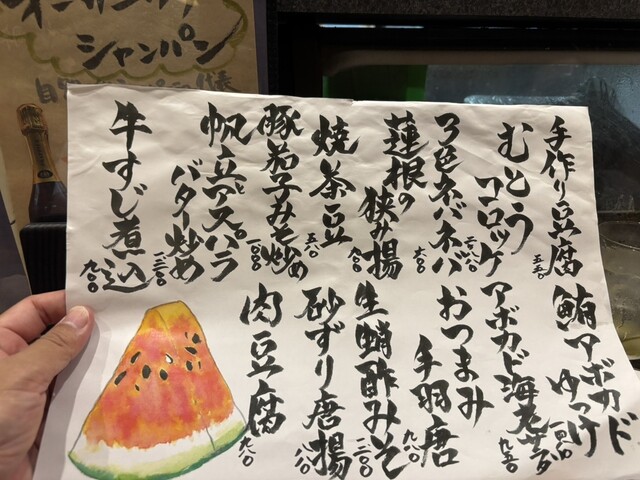 手作り豆腐 五五〇
むとう
コロッケ
3色ネバネバ 六〇〇
蓮根の
挟み揚 八〇〇
焼茶豆 五八〇
豚茄子みそ炒め 一〇〇〇
帆立とアスパラ
バター炒め 一二〇〇
牛すじ煮込 九〇〇
鮪アボカド
ゆっけ
アボカド海老サラダ 九五〇
おつまみ
手羽唐 九八〇
生蛸酢みそ 一二〇〇
砂ずり唐揚 八八〇
肉豆腐 九八〇
シャンパン